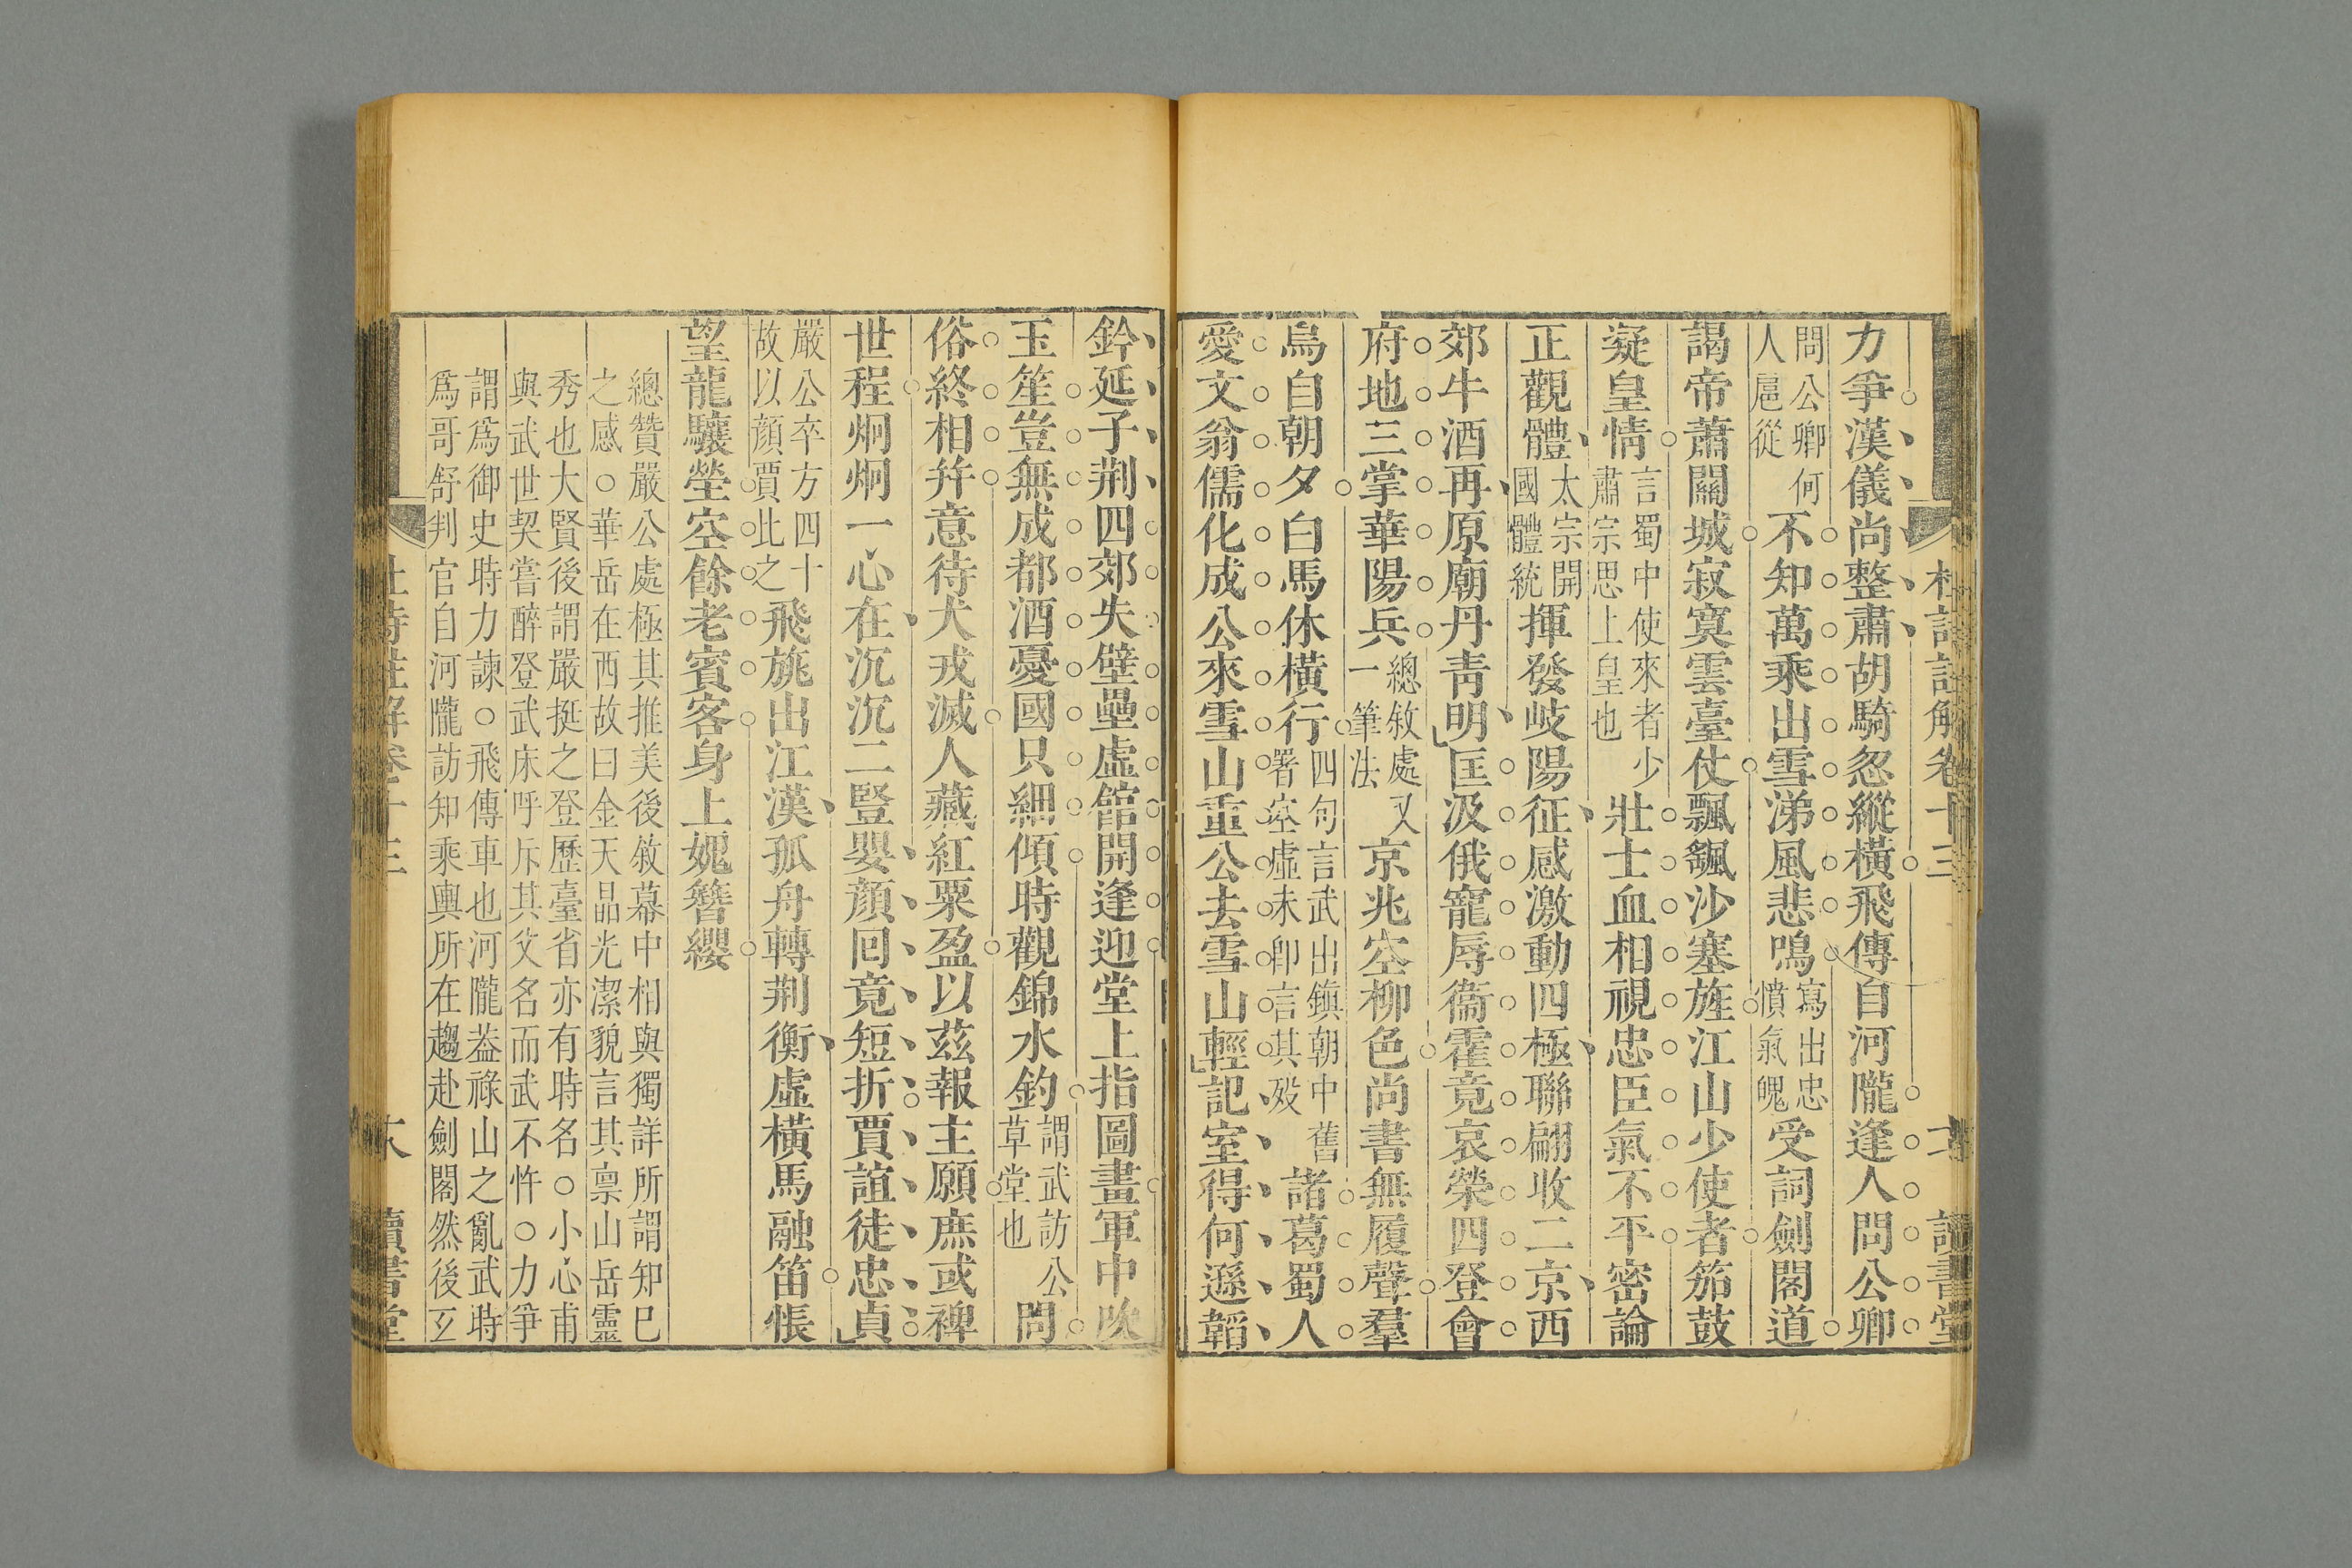 杜詩註解卷十三 讀書堂
力爭漢儀尚整肅胡騎忽縱橫飛傳自河隴逢人問公卿
問公卿何
人扈從
不知萬乘出雪涕風悲鳴
寫出忠
憤氣魄
受詞劍閣道
謁帝蕭關城寂寞雲臺仗飄颻沙塞旌江山少使者笳鼓
凝皇情
言蜀中使來者少
肅宗思上皇也
壯士血相視忠臣氣不平密論
正觀體
太宗開
國體統
揮發岐陽征感激動四極聯翩收二京西
郊牛酒再原廟丹青明匡汲俄寵辱衞霍竟哀榮四登會
府地三掌華陽兵
總敘處又
一筆法
京兆空柳色尚書無履聲羣
烏自朝夕白馬休橫行
四句言武出鎮朝中舊
署空虛未卽言其殁
諸葛蜀人
愛文翁儒化成公來雪山重公去雪山輕記室得何遜韜
鈐延子荆四郊失壁壘虛館開逢迎堂上指圖畫軍中吹
玉笙豈無成都酒憂國只細傾時觀錦水釣
謂武訪公
草堂也
問
俗終相幷意待犬戎滅人藏紅粟盈以茲報主願庶或裨
世程炯炯一心在沉沉二豎嬰顔囘竟短折賈誼徒忠貞
嚴公卒方四十
故以顔賈此之
飛旐出江漢孤舟轉荆衡虛橫馬融笛悵
望龍驤塋空餘老賓客身上媿簪纓
總贊嚴公處極其推美後敘幕中相與獨詳所謂知巳
之感○華岳在西故曰金天晶光潔貌言其禀山岳靈
秀也大賢後謂嚴挺之登歷臺省亦有時名○小心甫
與武世契嘗醉登武床呼斥其父名而武不忤○力爭
謂爲御史時力諫○飛傳車也河隴葢祿山之亂武時
爲哥舒判官自河隴訪知乘輿所在趨赴劍閣然後又
杜詩註解卷十三 讀書堂